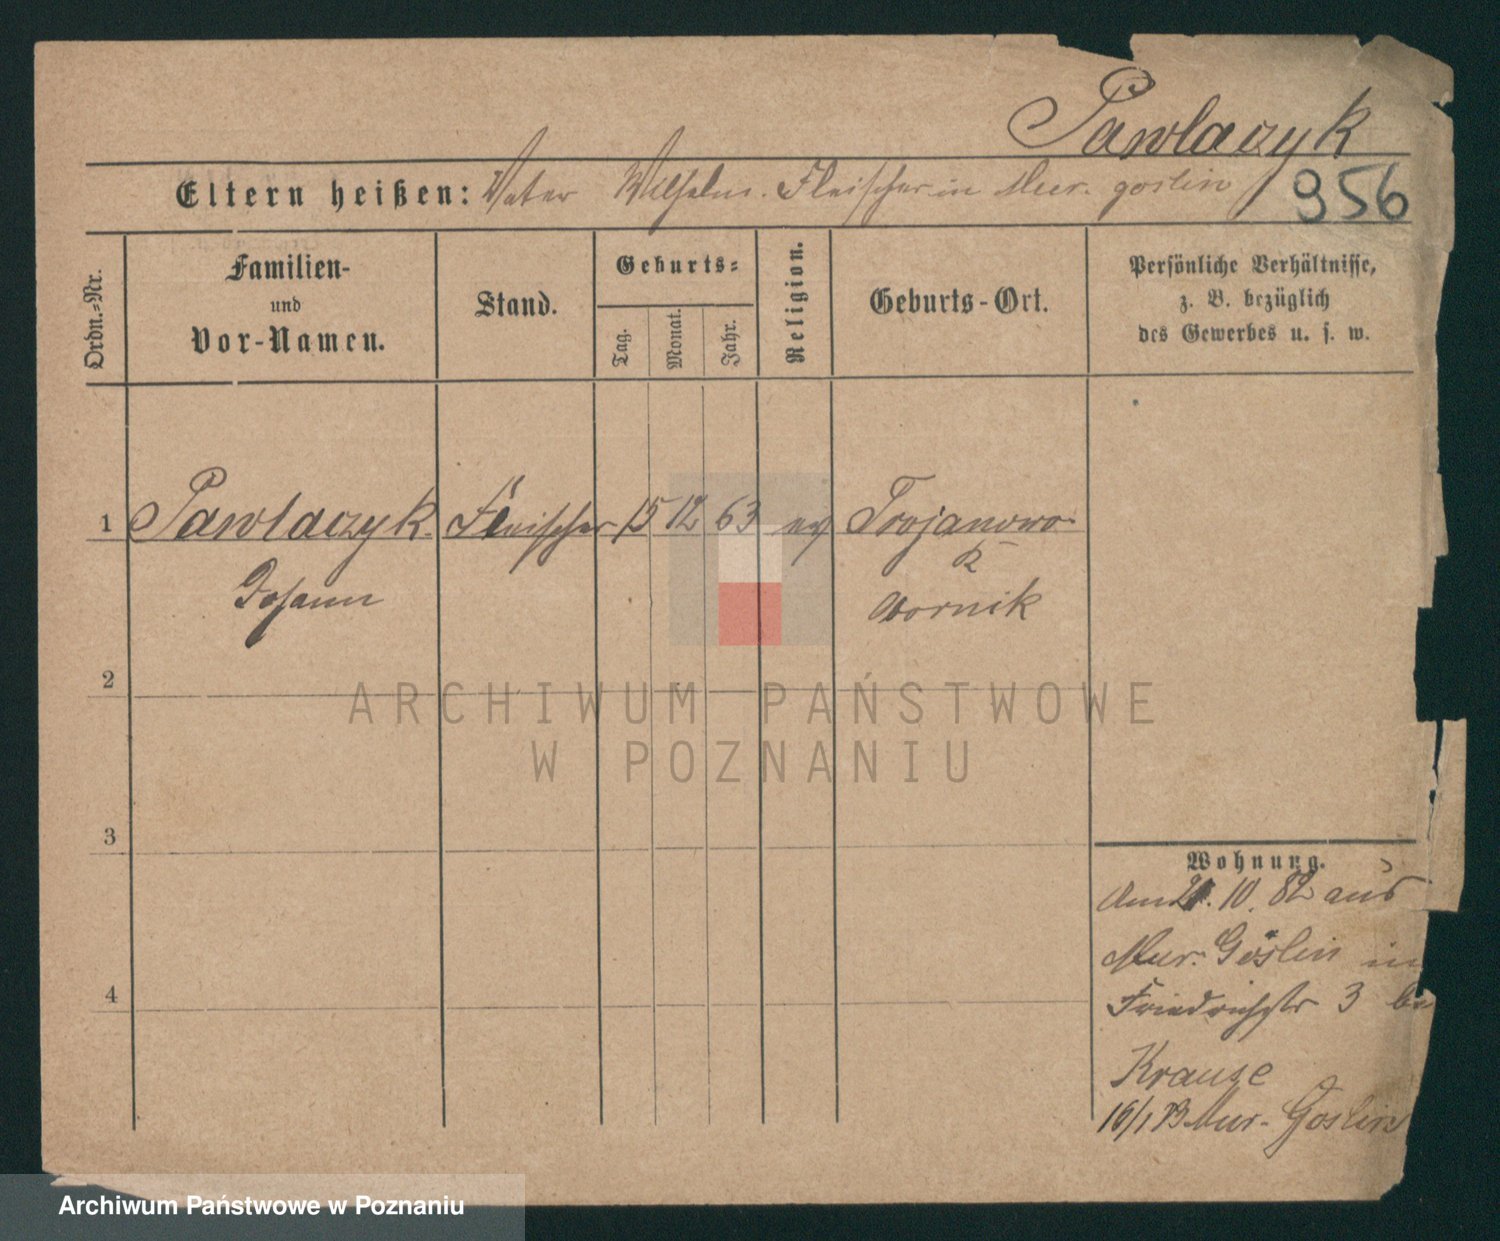 Pawlaczyk
Eltern heißen: Vater Wilhelm. Fleischer in Mur. goslin 956
Ordn.-Nr.
Familien-
und
Vor-Namen.
Stand.
Geburts-
Tag.
Monat.
Jahr.
Religion.
Geburts-Ort.
Persönliche Verhältnisse,
z. B. bezüglich
des Gewerbes u. s. w.
1 Pawlaczyk Fleischer 15 12 63 ev Trojanowo
Johann
2
3
4
Wohnung.
Am 21. 10. 82 aus
Mur. Goslin in
Friedrichstr 3 bei
Krause
16/1 Mur. Goslin
ARCHIWUM PAŃSTWOWE
W POZNANIU
Archiwum Państwowe w Poznaniu